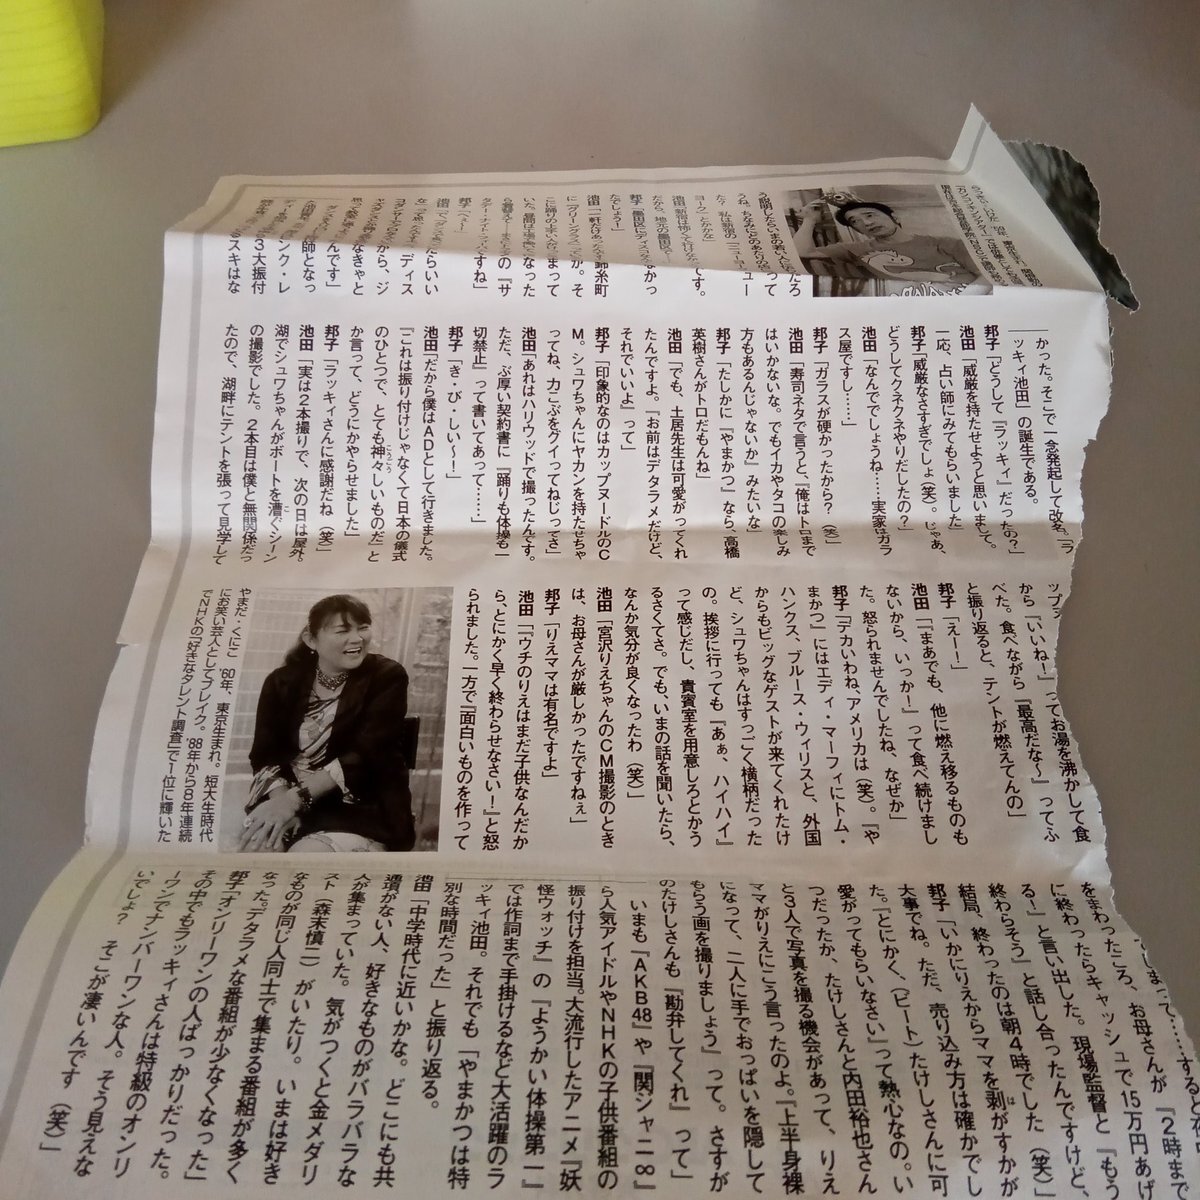 だろ
って
ュー
です。
なかっ
錦糸町
か。そ
まって
なった
の『サ
すね」
たらいい
ディス
から、ジ
なきゃと
んです」
師となっ
3大振付
ンク・レ
るスキはな
かった。そこで一念発起して改名。「ラ
ッキィ池田」の誕生である。
邦子「どうして『ラッキィ』だったの?」
池田「威厳を持たせようと思いまして。
一応、占い師にみてもらいました」
邦子「威厳なさすぎでしょ(笑)。じゃあ、
どうしてクネクネやりだしたの?」
池田「なんででしょうね……実家はガラ
ス屋ですし……」
邦子「ガラスが硬かったから?(笑)」
池田「寿司ネタで言うと、『俺はトロまで
はいかないな。でもイカやタコの楽しみ
方もあるんじゃないか』みたいな」
邦子「たしかに『やまかつ』なら、高橋
英樹さんがトロだもんね」
池田「でも、土居先生は可愛がってくれ
たんですよ。『お前はデタラメだけど、
それでいいよ』って」
邦子「印象的なのはカップヌードルのC
M。シュワちゃんにヤカンを持たせちゃ
ってね、力こぶをグイってねじってさ」
池田「あれはハリウッドで撮ったんです。
ただ、ぶ厚い契約書に『踊りも体操も一
切禁止』って書いてあって……」
邦子「き・び・し・い〜!」
池田「だから僕はADとして行きました。
『これは振り付けじゃなくて日本の儀式
のひとつで、とても神々しいものだ』と
か言って、どうにかやらせました」
邦子「ラッキィさんに感謝だね(笑)」
池田「実は2本撮りで、次の日は屋外。
湖でシュワちゃんがボートを漕ぐシーン
の撮影でした。2本目は僕と無関係だっ
たので、湖畔にテントを張って見学して
から『いいね!』ってお湯を沸かして食
べた。食べながら『最高だな〜』ってふ
と振り返ると、テントが燃えてんの」
邦子「えー!」
池田「『まあでも、他に燃え移るものも
ないから、いっか!』って食べ続けまし
た。怒られませんでしたね、なぜか」
邦子「デカいわね、アメリカは(笑)。『や
まかつ』にはエディ・マーフィにトム・
ハンクス、ブルース・ウィリスと、外国
からもビッグなゲストが来てくれたけ
ど、シュワちゃんはすっごく横柄だった
の。挨拶に行っても『あぁ、ハイハイ』
って感じだし、貴賓室を用意しろとかう
るさくてさ。でも、いまの話を聞いたら、
なんか気分が良くなったわ(笑)」
池田「宮沢りえちゃんのCM撮影のとき
は、お母さんが厳しかったですねぇ」
邦子「りえママは有名ですよ」
池田「『ウチのりえはまだ子供なんだか
ら、とにかく早く終わらせなさい!』と怒
られました。一方で『面白いものを作って
やまだ・くにこ '60年、東京生まれ。短大生時代
にお笑い芸人としてブレイク。'88年から8年連続
でNHKの「好きなタレント調査」で1位に輝いた
をまわったころ、お母さんが『2時まで
に終わったらキャッシュで15万円あげ
る!』と言い出した。現場監督と『もう
終わらそう』と話し合ったんですけど、
結局、終わったのは朝4時でした(笑)」
邦子「いかにりえからママを剥がすかが
大事でね。ただ、売り込み方は確かでし
た。『とにかく、(ビート)たけしさんに可
愛がってもらいなさい』って熱心なの。い
つだったか、たけしさんと内田裕也さん
と3人で写真を撮る機会があって、りえ
ママがりえにこう言ったのよ。『上半身裸
になって、二人に手でおっぱいを隠して
もらう画を撮りましょう』って。さすが
のたけしさんも『勘弁してくれ』って」
いまも『AKB48』や『関ジャニ∞』
ら人気アイドルやNHKの子供番組の
振り付けを担当。大流行したアニメ『妖
怪ウォッチ』の『ようかい体操第一』
では作詞まで手掛けるなど大活躍のラ
ッキィ池田。それでも「やまかつは特
別な時間だった」と振り返る。
池田「中学時代に近いかな。どこにも共
通項がない人、好きなものがバラバラな
人が集まっていた。気がつくと金メダリ
スト(森末慎二)がいたり。いまは好き
なものが同じ人同士で集まる番組が多く
なった。デタラメな番組が少なくなった」
邦子「オンリーワンの人ばっかりだった。
その中でもラッキィさんは特級のオンリ
ーワンでナンバーワンな人。そう見えな
いでしょ? そこが凄いんです(笑)」